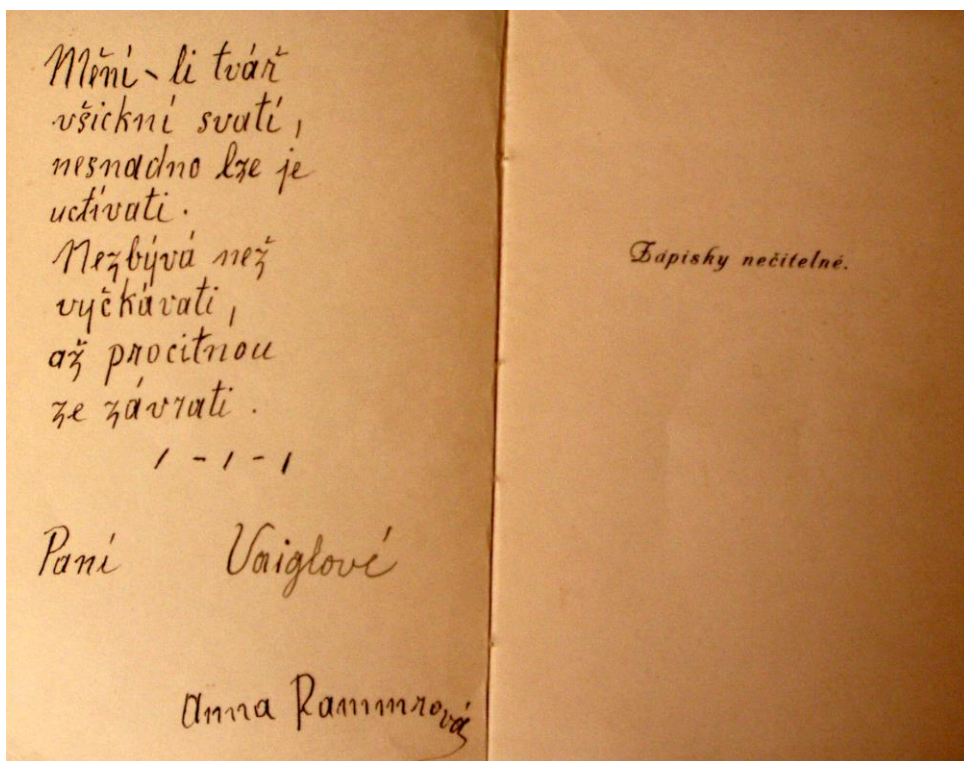 Mění-li tvář
všickní svatí,
nesnadno lze je
uctívati.
Nezbývá než
vyčkávati,
až procitnou
ze závrati.
/ - / - /
Paní Vaiglové
Anna Rammrová
Zápisky nečitelné.